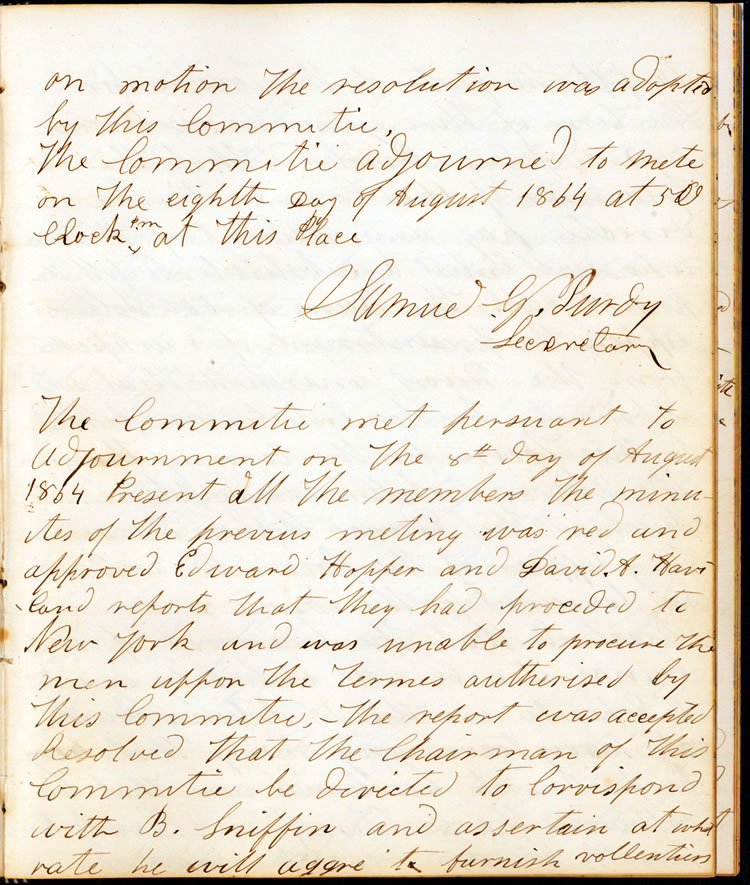 on motion the resolution was adopted
by this Committie.
The Committie adjourned to mete
on the eighth Day of August 1864 at 5 O
Clock P.m at this Place
Samuel G. Purdy
Secretary
The Committie met persuant to
adjournment on the 8th day of August
1864 Present all the members the minu-
tes of the previus meting was red and
approved Edward Hopper and David A. Havi
land reports that they had proceded to
New York and was unable to procure the
men uppon the termes autherised by
this Committie, - the report was accepted
Resolved that the Chairman of this
Committie be directed to Corrispond
with B. Sniffin and assertain at what
rate he will aggre to furnish vollentiers